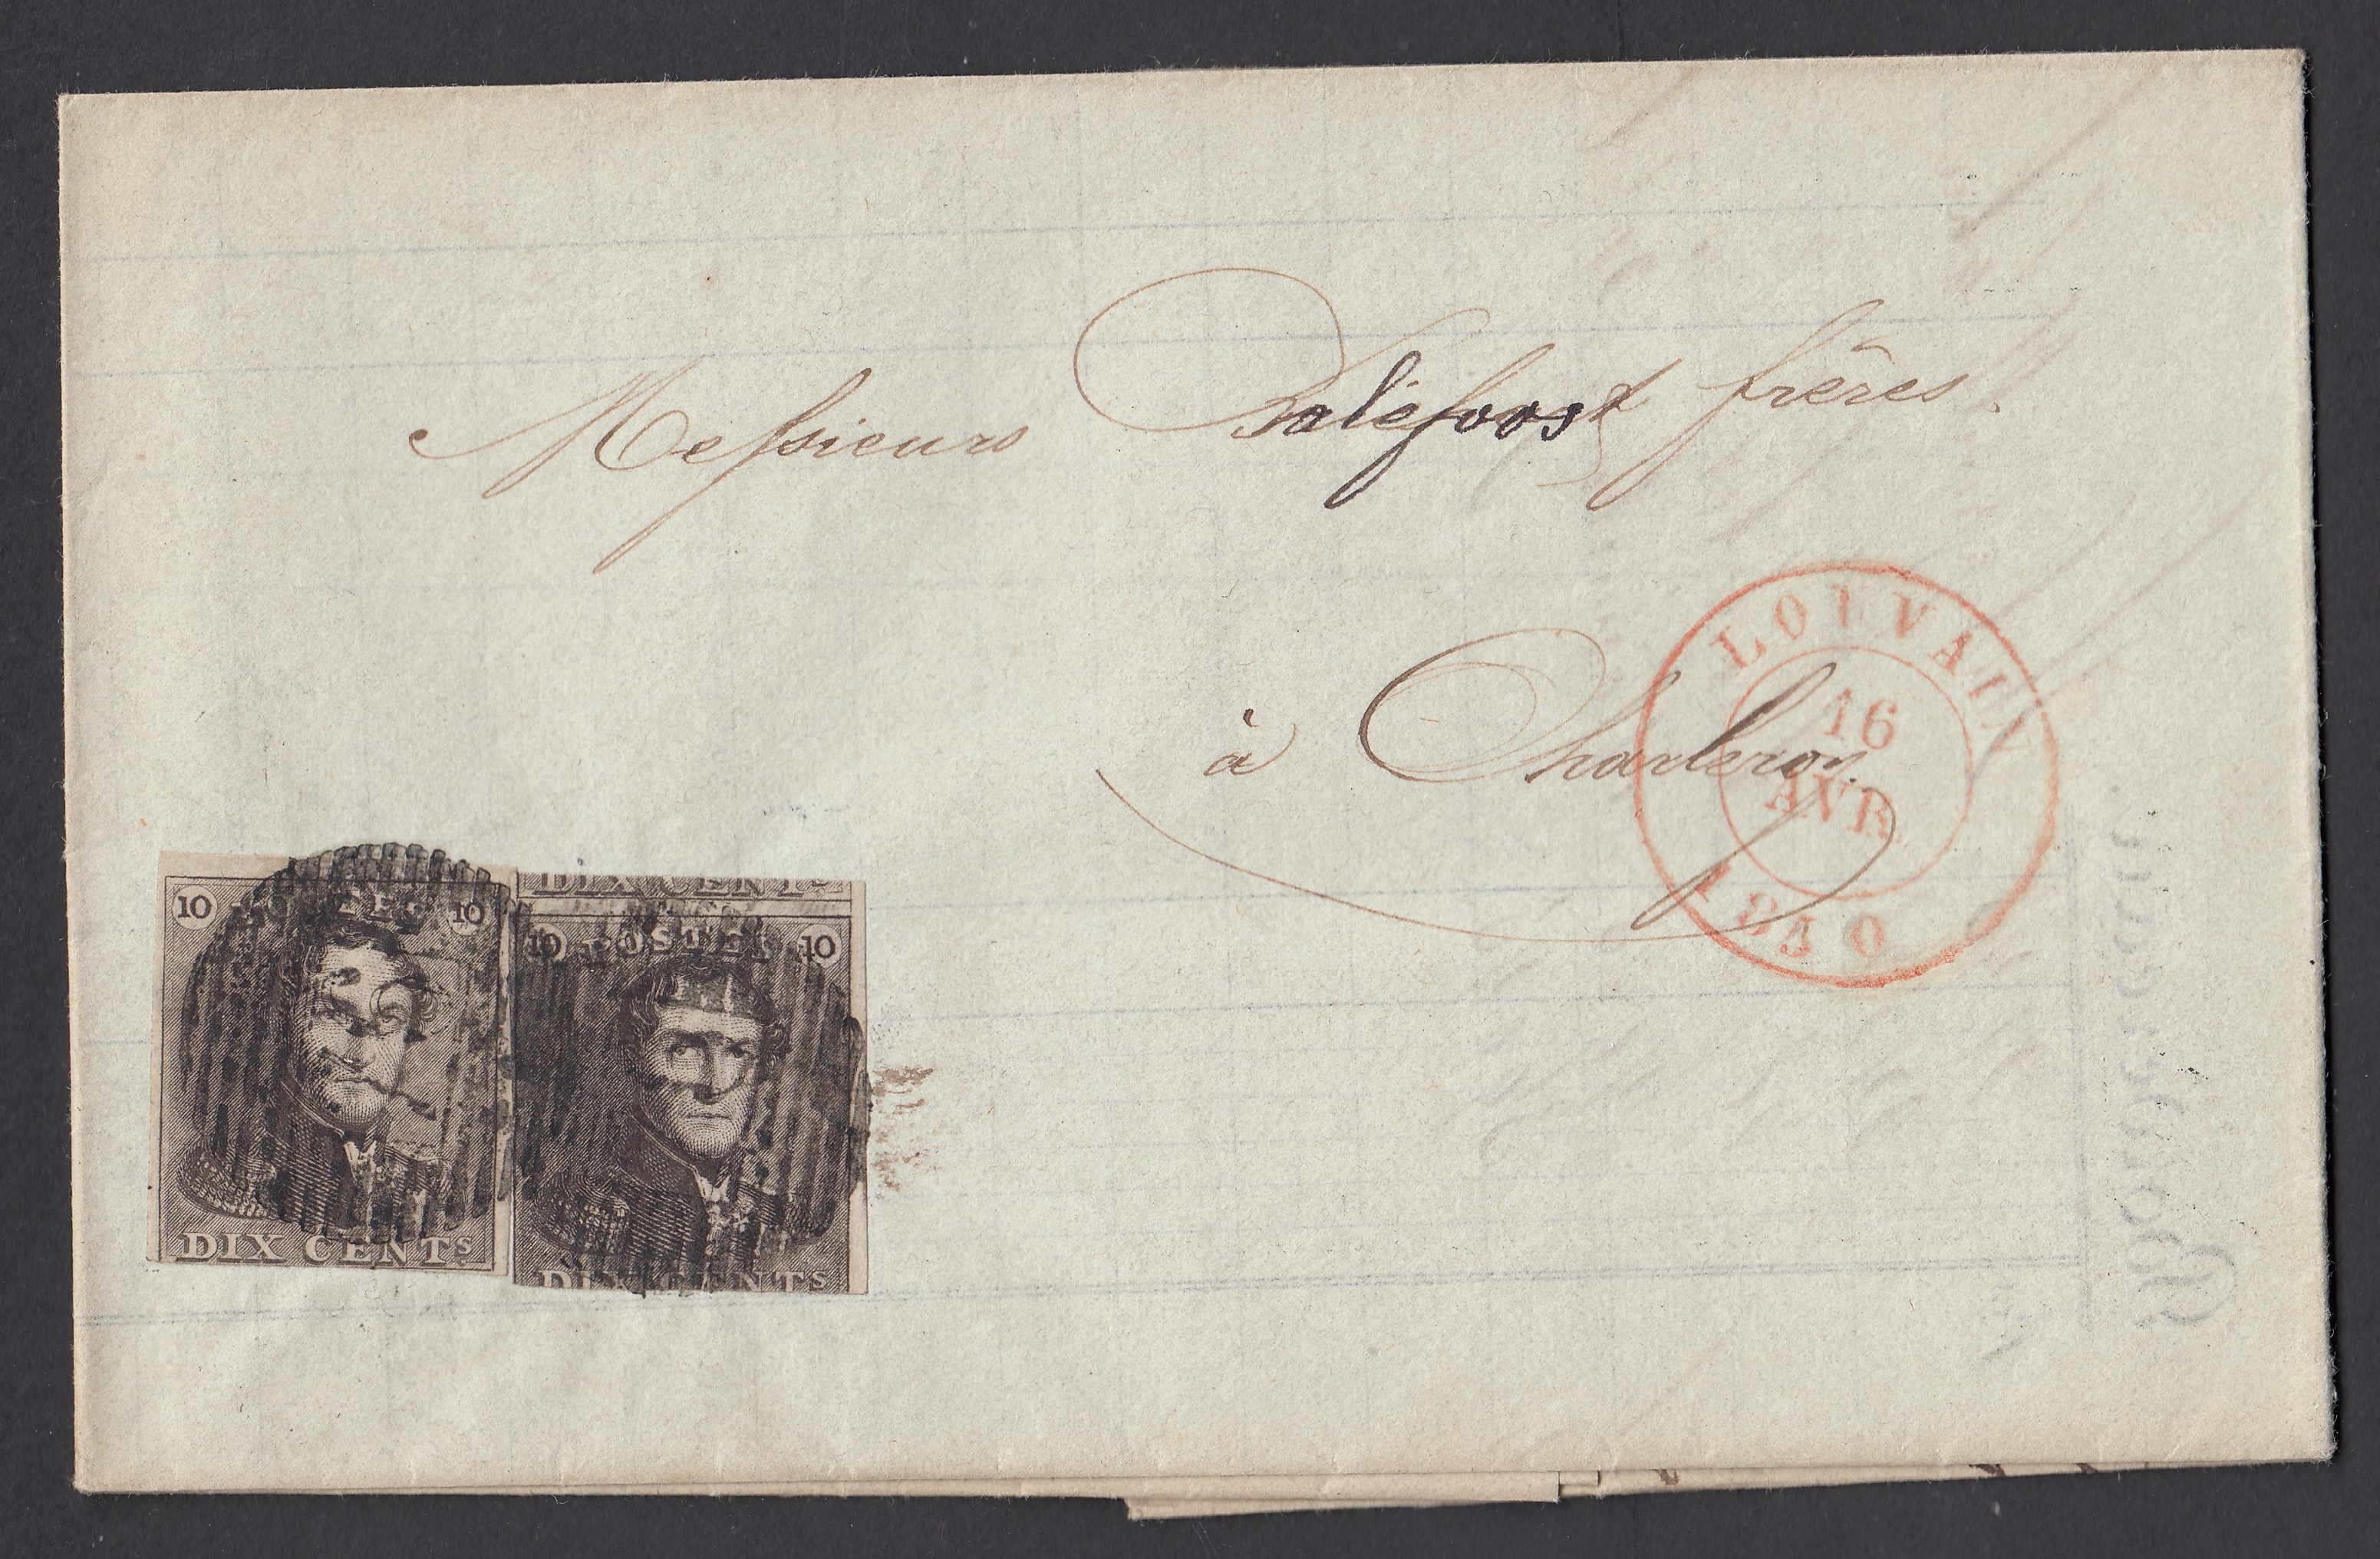 Messieurs Balefroost frères.
à Charleroy.
LOUVAIN
16
AVR
1850
10 POSTES 10
DIX CENTS
DIX CENTS
10 POSTES 10
DIX CENTS